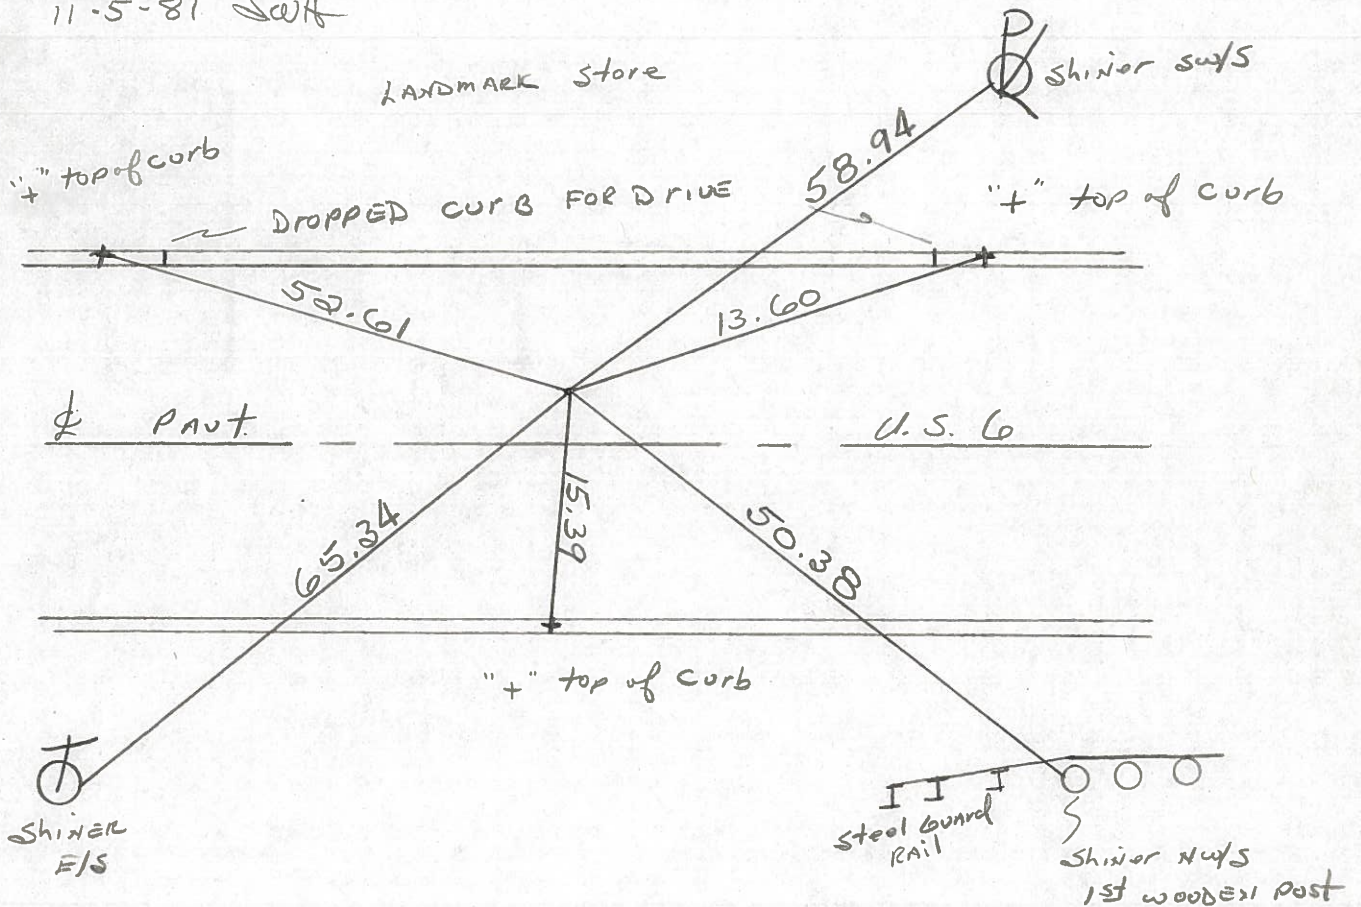 11-5-81 SWH
LANDMARK Store
P
Shiner SW/S
58.94
"+" top of curb
DROPPED CURB FOR DRIVE
"+" top of curb
52.61
13.60
℄ PAVT.
U.S. 6
65.34
15.39
50.38
"+" top of curb
T
SHINER
E/S
Steel Guard
RAIL
Shiner NW/S
1st WOODEN Post